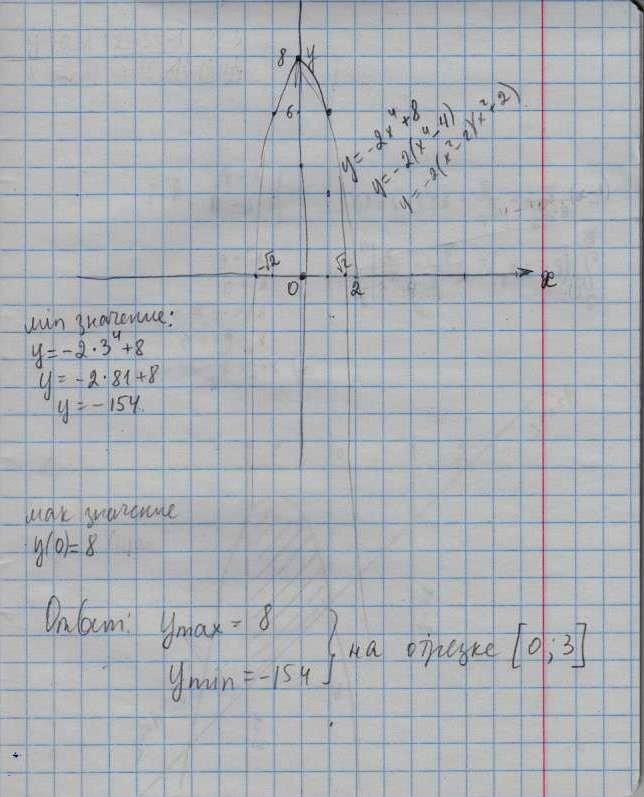 8 y
6
y = -2x⁴+8
y = -2(x⁴-4)
y = -2(x²-2)(x²+2)
-√2 √2
0 2 x
min значение:
y = -2·3⁴+8
y = -2·81+8
y = -154.
мак значение
y(0)= 8
Ответ: ymax = 8
ymin = -154 } на отрезке [0;3]